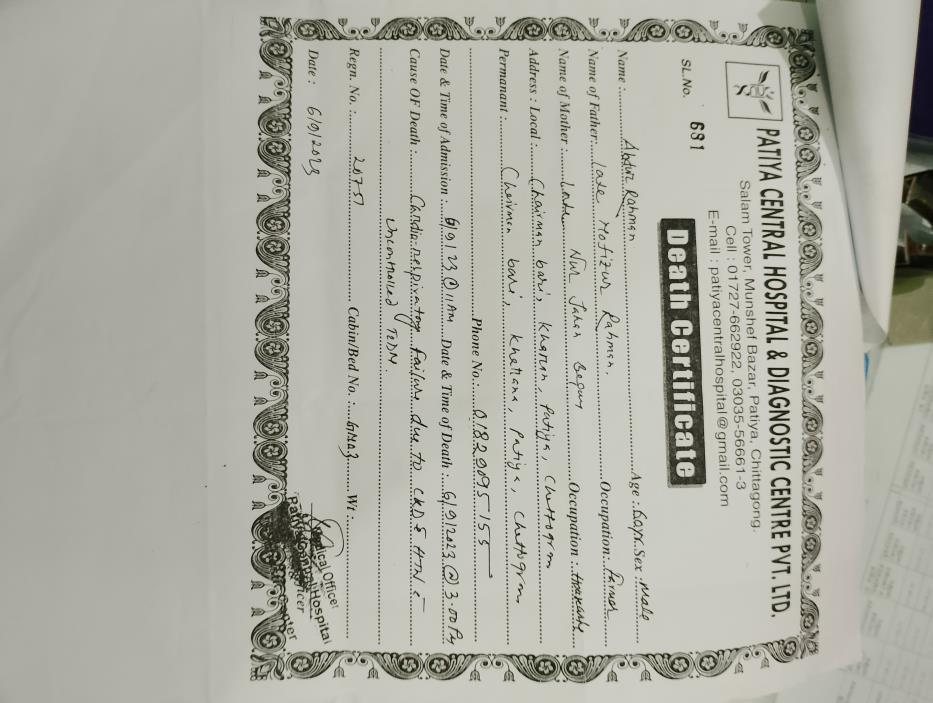 PATIYA CENTRAL HOSPITAL & DIAGNOSTIC CENTRE PVT. LTD.
Salam Tower, Munshef Bazar, Patiya, Chittagong.
Cell : 01727-662922, 03035-56661-3
E-mail : patiyacentralhospital@gmail.com
SL.No. 691
Death Certificate
Name : Abdur Rahman Age : 60yr. Sex : male
Name of Father: late Mofizur Rahman. Occupation: Farmer
Name of Mother : Late Nur Jahan Begum Occupation :
Address : Local : Chairman bari, Kharan, Patiya, Chattogram
Permanant : Chairmen bari, Kharana, Patiya, Chattogram,
Phone No.: 01829095155
Date & Time of Admission : 6/9/23 @ 11 AM Date & Time of Death : 6/9/2023 @ 3.00 PM
Cause OF Death : Cardio-respiratory failure due to CKD & HTN c̄
Uncontrolled T2DM.
Regn. No. : 2075 Cabin/Bed No. : Wt :
Date : 6/9/2023
Medical Officer
Hospital